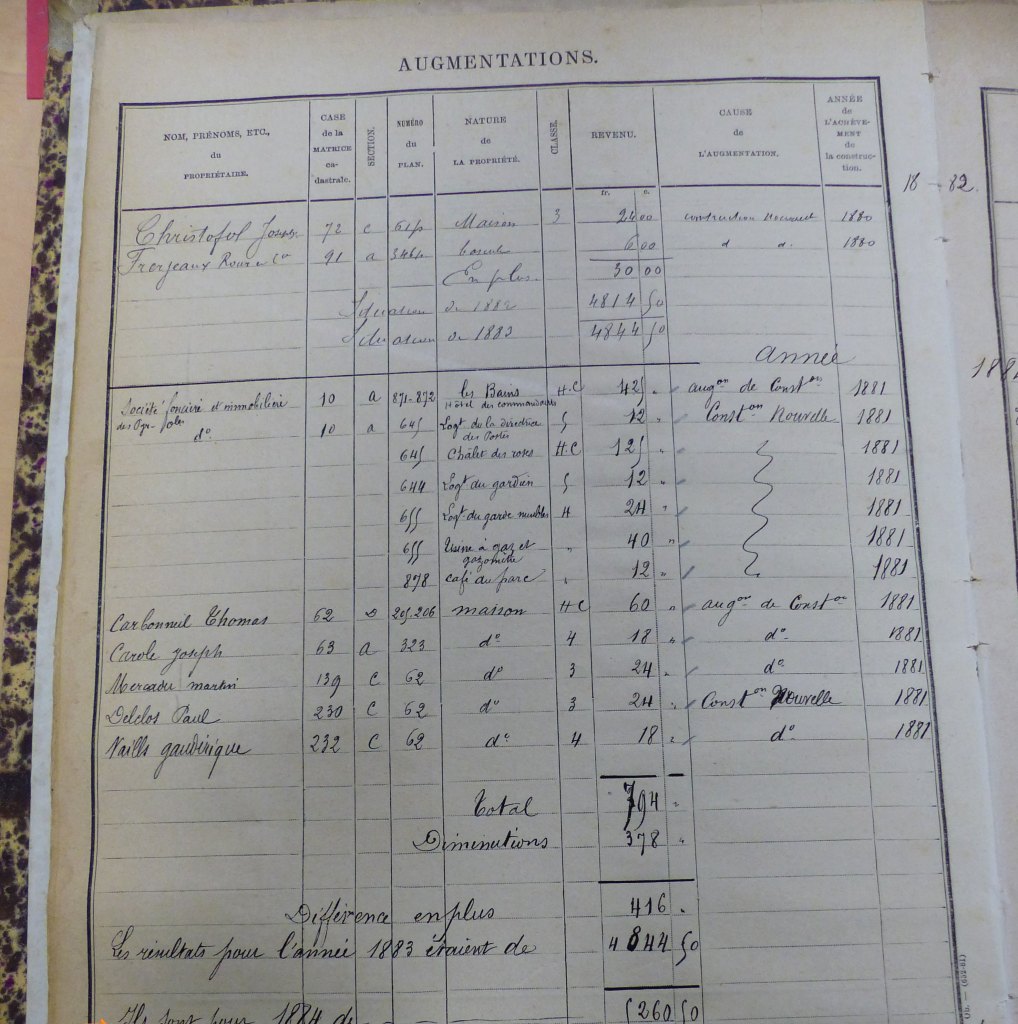 AUGMENTATIONS.
NOM, PRÉNOMS, ETC., du PROPRIÉTAIRE.
CASE de la MATRICE ca-dastrale.
SECTION.
NUMÉRO du PLAN.
NATURE de LA PROPRIÉTÉ.
CLASSE.
REVENU.
CAUSE de L'AUGMENTATION.
ANNÉE de L'ACHÈVE-MENT de la construc-tion.
fr. c.
18 - 82.
Christofol Joseph 72 c 61p Maison 3 24 00 construction 1880
91 a 6 00 d d. 1880
En plus. 30 00
Situation de 1882 4814 50
Situation de 1883 4844 50
année
188
Société foncière et immobilière 10 a 871-872 les Bains H.C 425 " augon de Conston 1881
Hôtel des commandants
des Pyr- -ales
do 10 a 645 Logt de la directrice 5 12 " Conston Nouvelle 1881
des Postes
645 Châlet des roses H.C 125 " 1881
644 Logt du gardien 5 12 " 1881
655 Logt du garde meubles H 24 " 1881
655 Usine à gaz et " 40 " 1881
gazomètre
878 café du parc " 12 " 1881
Carbonneil Thomas 62 D 205.206 maison H C 60 " augon de Conston 1881
Carole joseph 63 a 323 do 4 18 " do 1881
Mercadu martin 139 C 62 do 3 24 " do 1881
Delclos Paul 230 C 62 do 3 24 " Conston Nouvelle 1881
Naills gaudérique 232 C 62 do 4 18 " do 1881
Total 794 "
Diminutions 378 "
Différence en plus 416 "
Les résultats pour l'année 1883 étaient de 4844 50
Ils sont pour 1884 de 5260 50